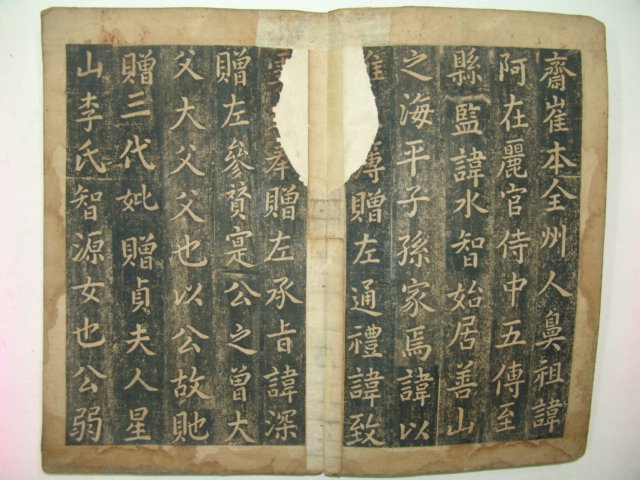 齋崔本全州人鼻祖諱
阿在麗官侍中五傳至
縣監諱水智始居善山
之海平子孫家焉諱以
傅贈左通禮諱致
奉贈左承旨諱深
贈左參贊寔公之曾大
父大父父也以公故貤
贈三代妣贈貞夫人星
山李氏智源女也公弱